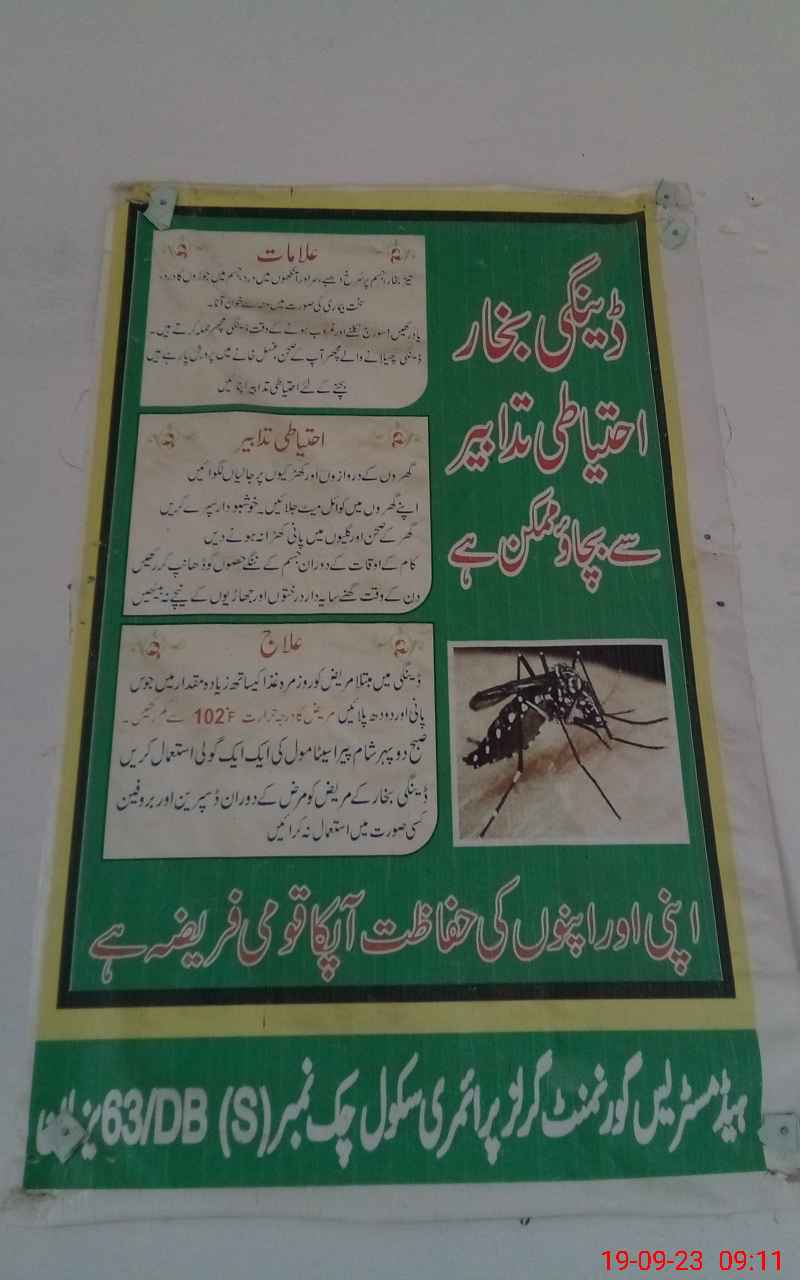 ڈینگی بخار
احتیاطی تدابیر
سے بچاؤ ممکن ہے
علامات
تیز بخار، جسم پر سرخ دھبے، سر اور آنکھوں میں درد، جسم میں جوڑوں کا درد،
سخت بیماری کی صورت میں منہ سے خون آنا۔
یاد رکھیں! سورج نکلنے اور غروب ہونے کے وقت ڈینگی مچھر حملہ کرتے ہیں۔
ڈینگی پھیلانے والے مچھر آپ کے صحن، غسل خانے میں پرورش پا رہے ہیں
بچنے کے لئے احتیاطی تدابیر اپنائیں
احتیاطی تدابیر
گھروں کے دروازوں اور کھڑکیوں پر جالیاں لگوائیں
اپنے گھروں میں کوائل میٹ جلائیں۔ خوشبودار سپرے کریں
گھر کے صحن اور گلیوں میں پانی کھڑا نہ ہونے دیں
کام کے اوقات کے دوران جسم کے ننگے حصوں کو ڈھانپ کر رکھیں
دن کے وقت گھنے سایہ دار درختوں اور جھاڑیوں کے نیچے نہ بیٹھیں
علاج
ڈینگی میں مبتلا مریض کو روزمرہ غذا کیساتھ زیادہ مقدار میں جوس
پانی اور دودھ پلائیں مریض کا درجہ حرارت 102°F سے کم رکھیں۔
صبح دوپہر شام پیراسیٹامول کی ایک ایک گولی استعمال کریں
ڈینگی بخار کے مریض کو مرض کے دوران ڈسپرین اور بروفین
کسی صورت میں استعمال نہ کرائیں
اپنی اور اپنوں کی حفاظت آپکا قومی فریضہ ہے
ہیڈمسٹریس گورنمنٹ گرلز پرائمری سکول چک نمبر 63/DB (S)
19-09-23 09:11